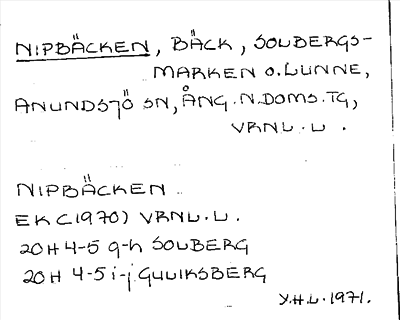 NIPBÄCKEN, BÄCK, SOLBERGS-
MARKEN O. LUNNE,
ANUNDSJÖ SN, ÅNG. N. DOMS. TG,
VRNL. L.
NIPBÄCKEN
EK (1970) VRNL. L.
20H 4-5 g-h SOLBERG
20H 4-5 i-j GULIKSBERG
Y.H.L. 1971.